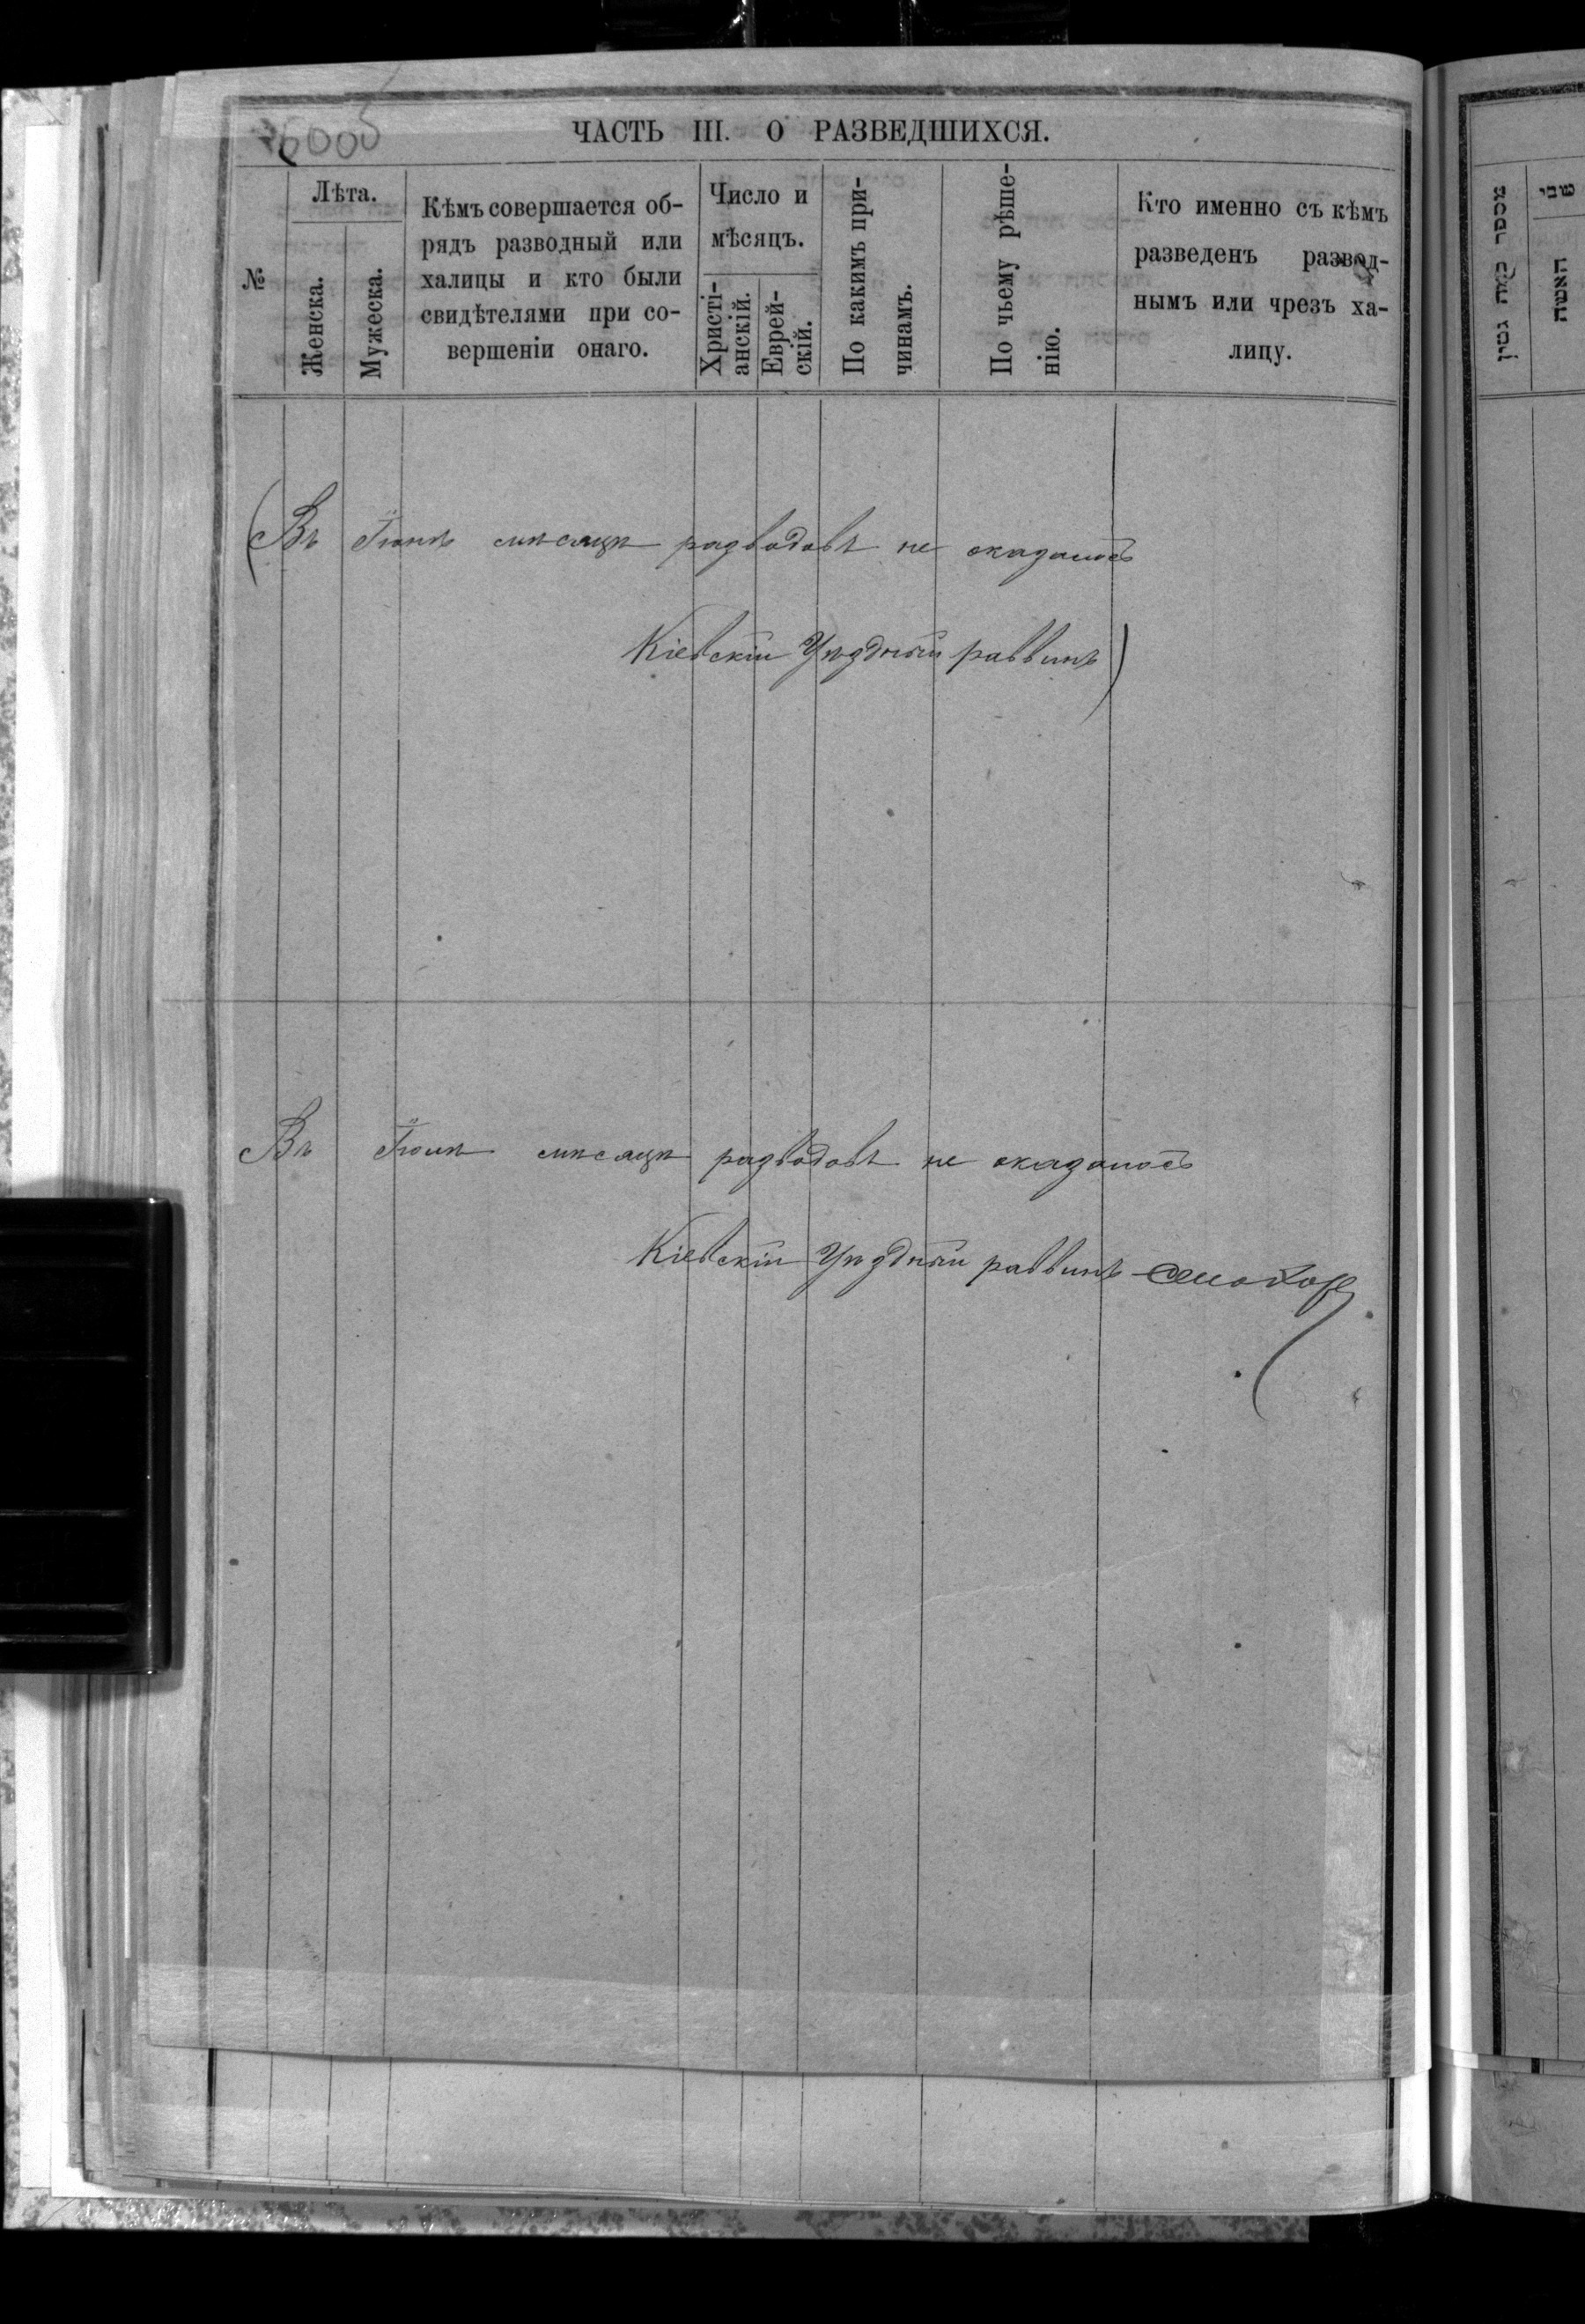 6005
ЧАСТЬ III. О РАЗВЕДШИХСЯ.
№
Лѣта.
Женска.
Мужеска.
Кѣмъ совершается об-
рядъ разводный или
халицы и кто были
свидѣтелями при со-
вершеніи онаго.
Число и
мѣсяцъ.
Христі-
анскій.
Еврей-
скій.
По какимъ при-
чинамъ.
По чьему рѣше-
нію.
Кто именно съ кѣмъ
разведенъ развод-
нымъ или чрезъ ха-
лицу.
(Въ Іюнѣ мѣсяцѣ разводовъ не оказалось
Кіевскій Уѣздный раввинъ)
Въ Іюлѣ мѣсяцѣ разводовъ не оказалось
Кіевскій Уѣздный раввинъ
מספר כמה גטין
שני
האשה